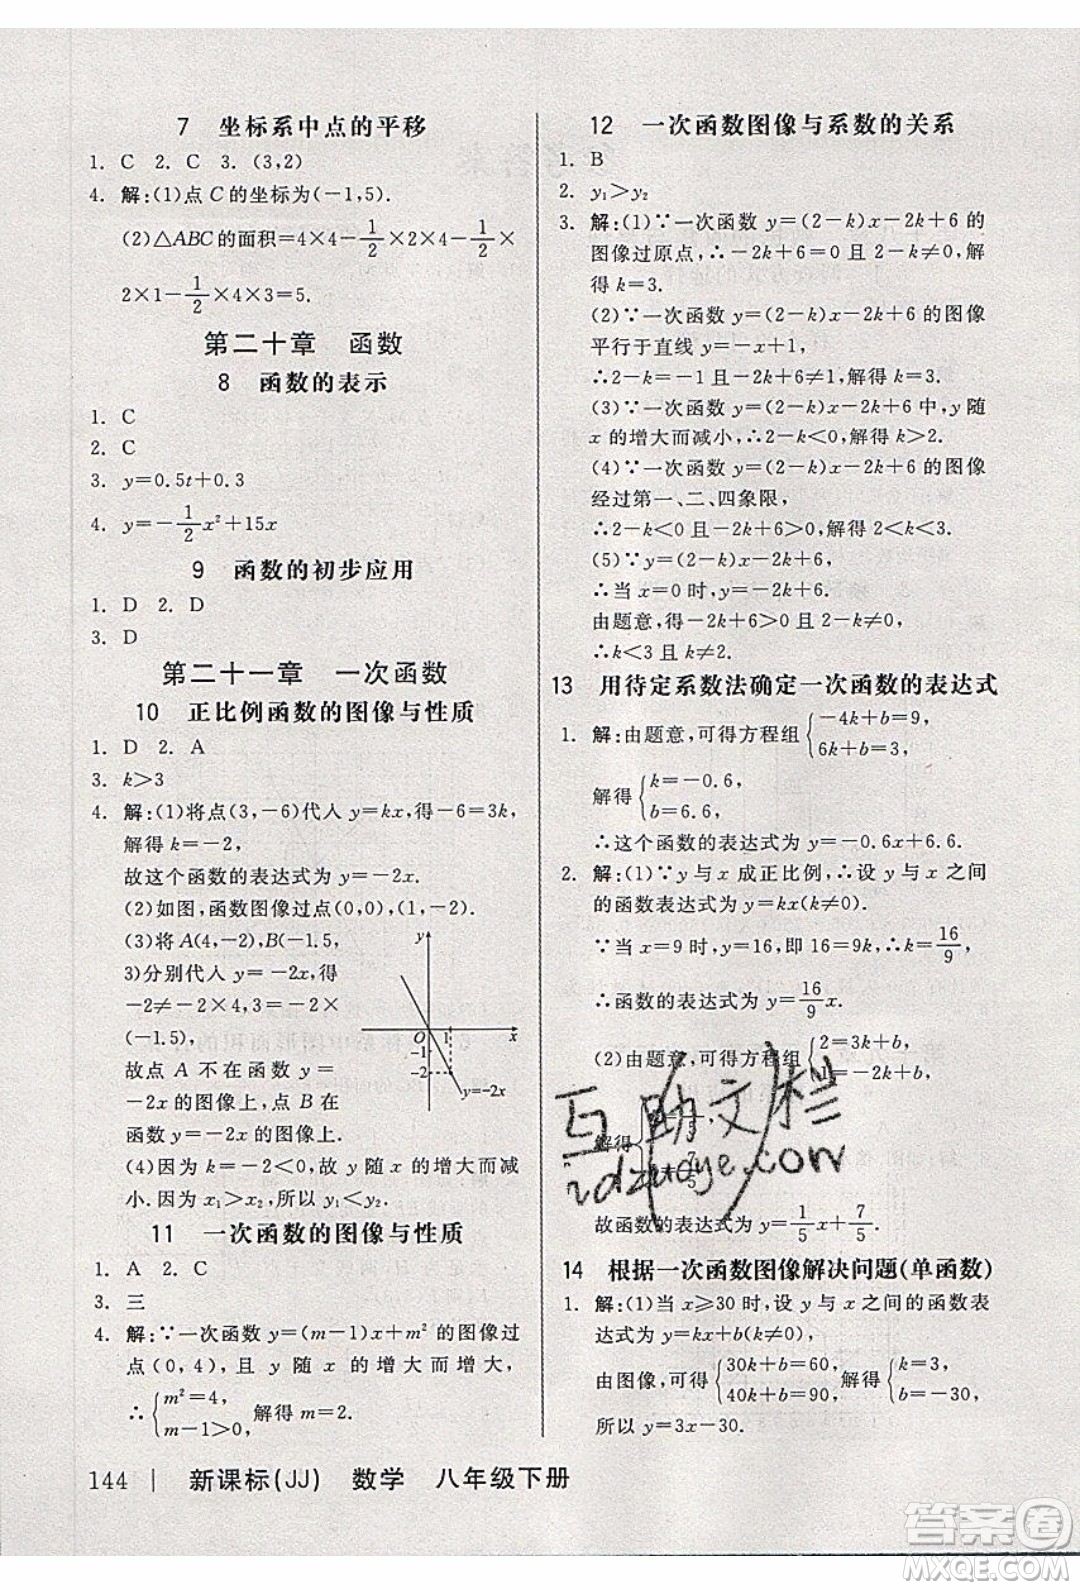 7 坐标系中点的平移
1. C 2. C 3. (3,2)
4. 解:(1)点 C 的坐标为(-1,5).
(2)△ABC 的面积=4×4-1/2×2×4-1/2×
2×1-1/2×4×3=5.
第二十章 函数
8 函数的表示
1. C
2. C
3. y=0.5t+0.3
4. y=-1/2x²+15x
9 函数的初步应用
1. D 2. D
3. D
第二十一章 一次函数
10 正比例函数的图像与性质
1. D 2. A
3. k>3
4. 解:(1)将点(3,-6)代人 y=kx,得-6=3k,
解得 k=-2,
故这个函数的表达式为 y=-2x.
(2)如图,函数图像过点(0,0),(1,-2).
(3)将 A(4,-2),B(-1.5,
3)分别代人 y=-2x,得
-2≠-2×4,3=-2×
(-1.5),
故点 A 不在函数 y=
-2x 的图像上,点 B 在
函数 y=-2x 的图像上.
y
O 1 x
-1
-2
y=-2x
(4)因为 k=-2<0,所以 y 随 x 的增大而减
小.因为 x₁>x₂,所以 y₁<y₂.
11 一次函数的图像与性质
1. A 2. C
3. 三
4. 解:∵一次函数 y=(m-1)x+m² 的图像过
点(0,4),且 y 随 x 的增大而增大,
∴{m²=4, m-1>0, 解得 m=2.
144 | 新课标(JJ) 数学 八年级下册
12 一次函数图像与系数的关系
1. B
2. y₁>y₂
3. 解:(1)∵一次函数 y=(2-k)x-2k+6 的
图像过原点,∴-2k+6=0 且 2-k≠0,解得
k=3.
(2)∵一次函数 y=(2-k)x-2k+6 的图像
平行于直线 y=-x+1,
∴2-k=-1 且-2k+6≠1,解得 k=3.
(3)∵一次函数 y=(2-k)x-2k+6 中,y 随
x 的增大而减小,∴2-k<0,解得 k>2.
(4)∵一次函数 y=(2-k)x-2k+6 的图像
经过第一、二、四象限,
∴2-k<0 且-2k+6>0,解得 2<k<3.
(5)∵y=(2-k)x-2k+6,
∴当 x=0 时,y=-2k+6,
由题意,得-2k+6>0 且 2-k≠0,
∴k<3 且 k≠2.
13 用待定系数法确定一次函数的表达式
1. 解:由题意,可得方程组{-4k+b=9, 6k+b=3,
解得{k=-0.6, b=6.6,
∴这个函数的表达式为 y=-0.6x+6.6.
2. 解:(1)∵y 与 x 成正比例,∴设 y 与 x 之间
的函数表达式为 y=kx(k≠0).
∵当 x=9 时,y=16,即 16=9k,∴k=16/9,
∴函数的表达式为 y=16/9x.
(2)由题意,可得方程组{2=3k+b, 1=-2k+b,
解得
故函数的表达式为 y=1/5x+7/5.
互助文栏
idzuoye.com
14 根据一次函数图像解决问题(单函数)
1. 解:(1)当 x≥30 时,设 y 与 x 之间的函数表
达式为 y=kx+b(k≠0),
由图像,可得{30k+b=60, 40k+b=90,解得{k=3, b=-30,
所以 y=3x-30.
答案卷
MXQE.COM